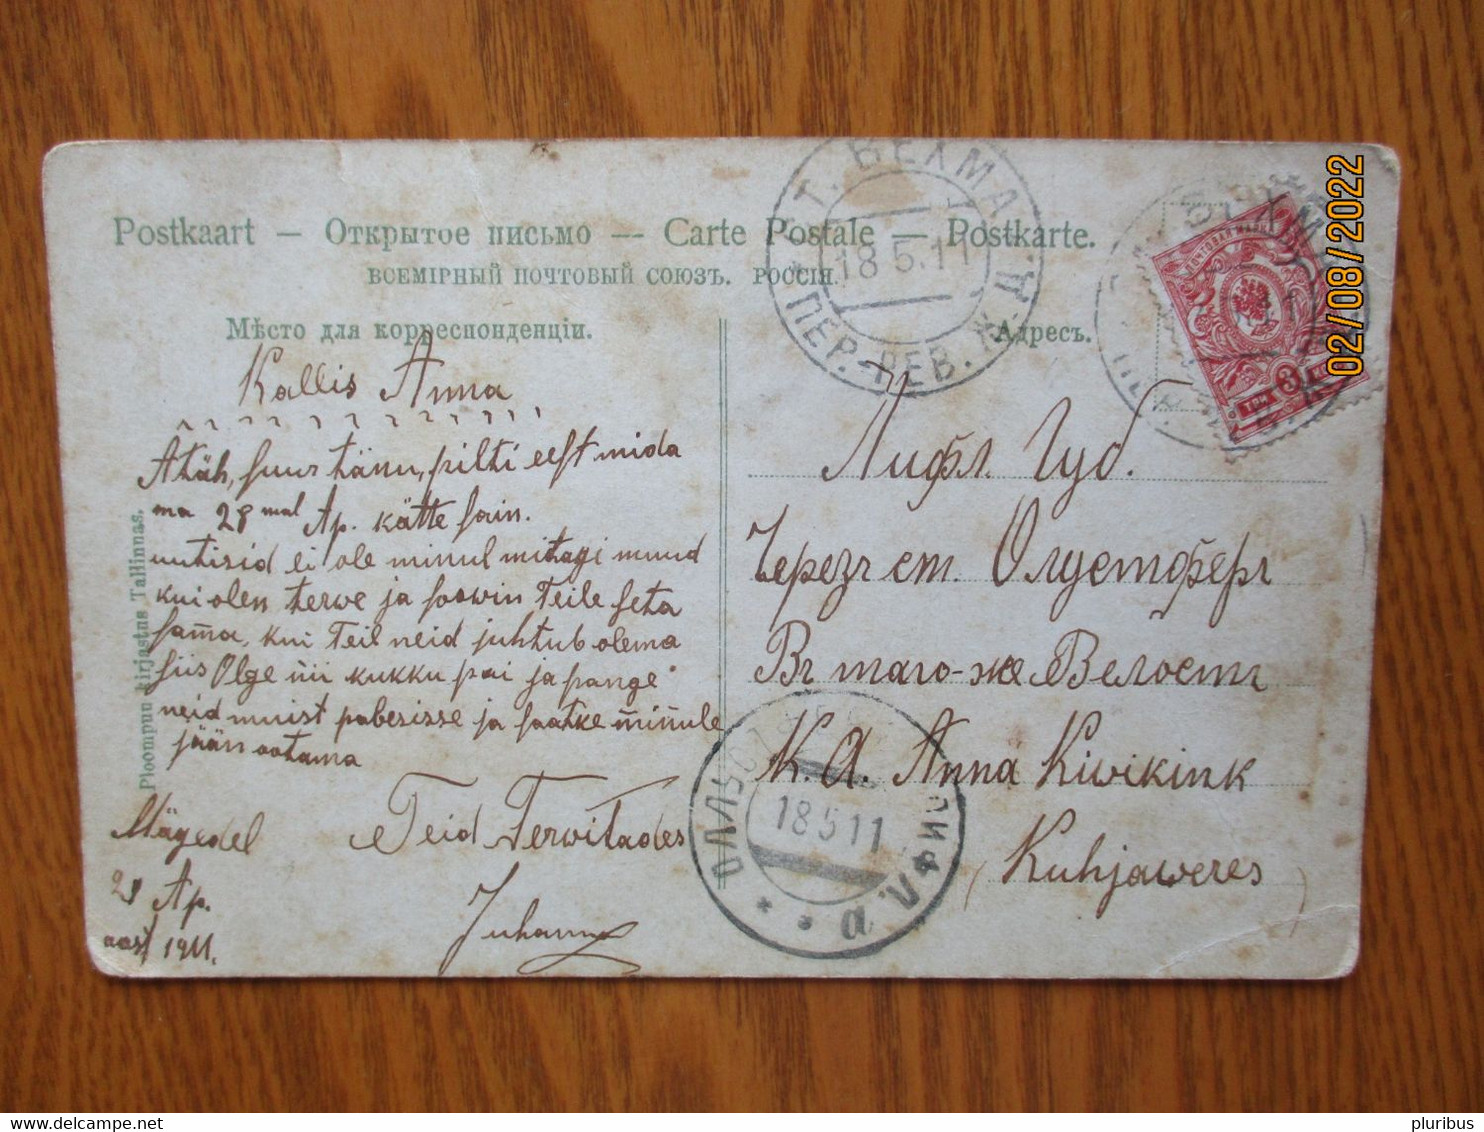 Postkaart — Открытое письмо — Carte Postale — Postkarte.
ВСЕМІРНЫЙ ПОЧТОВЫЙ СОЮЗЪ. РОССІЯ.
Мѣсто для корреспонденціи.
Адресъ.
Kallis Anna
Aitäh, suur tänu, pilti eest mida
ma 28 mal Ap. kätte sain.
uutisid ei ole minul mitagi muud
kui olen terwe ja soowin Teile seta
sama, kui Teil neid juhtub olema
siis Olge nii kukku pai ja pange
neid muist pabesisse ja saatke minule
jään ootama
Teid Terwitades
Juhan
Mägedel
28 Ap.
aast 1911.
Ploompuu kirjastus Tallinnas.
Лифл. Губ.
Черезъ ст. Олустферъ
Въ таго-же Велость
K. A. Anna Kiwikink
(Kuhjaweres)
СТ. ВЕЛМА
ПЕР.-РЕВ. Ж. Д.
18 5.11
18 5 11
ПОЧТОВАЯ МАРКА
ТРИ 3 КОП
02/08/2022
delcampe.net
pluribus